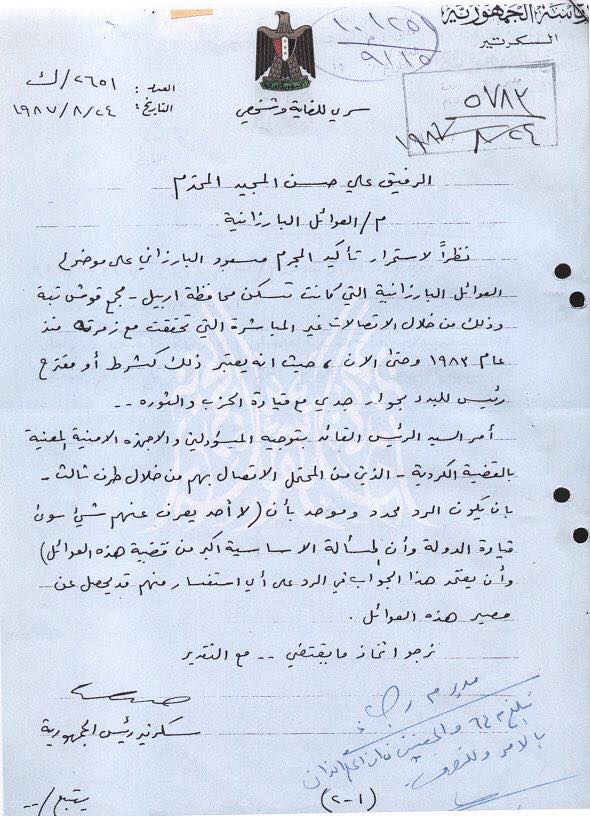 رئاسة الجمهورية
السكرتير
١٠١٢٥١
٩/١٥
٥٧٨٢
٨/٢٤
العدد : ٢٦٥١/ك
التاريخ : ١٩٨٧/٨/٢٤
سري للغاية وشخصي
الرفيق علي حسن المجيد المحترم
م/ العوائل البارزانية
نظراً لاستمرار تأكيد المجرم مسعود البارزاني على موضوع
العوائل البارزانية التي كانت تسكن محافظة اربيل - مجمع قوش تبة
وذلك من خلال الاتصالات غير المباشرة التي تحققت مع زمرته منذ
عام ١٩٨٣ وحتى الان ، حيث انه يعتبر ذلك كشرط أو مقترح
رئيس للبدء بحوار جدي مع قيادة الحزب والثوره --
أمر السيد الرئيس القائد بتوجيه المسؤولين والاجهزه الامنية المعنية
بالقضية الكردية - الذين من المحتمل الاتصال بهم من خلال طرف ثالث -
بان يكون الرد محدد وموحد بأن (لا أحد يعرف عنهم شيئ سوى
قيادة الدولة وأن المسألة الاساسية اكبر من قضية هذه العوائل)
وأن يعتمد هذا الجواب في الرد على أي استفسار منهم قد يحصل عن
مصير هذه العوائل .
نرجو اتخاذ ما يقتضي -- مع التقدير
سكرتير رئيس الجمهورية
بالامر
(١-٢)
يتبع/--